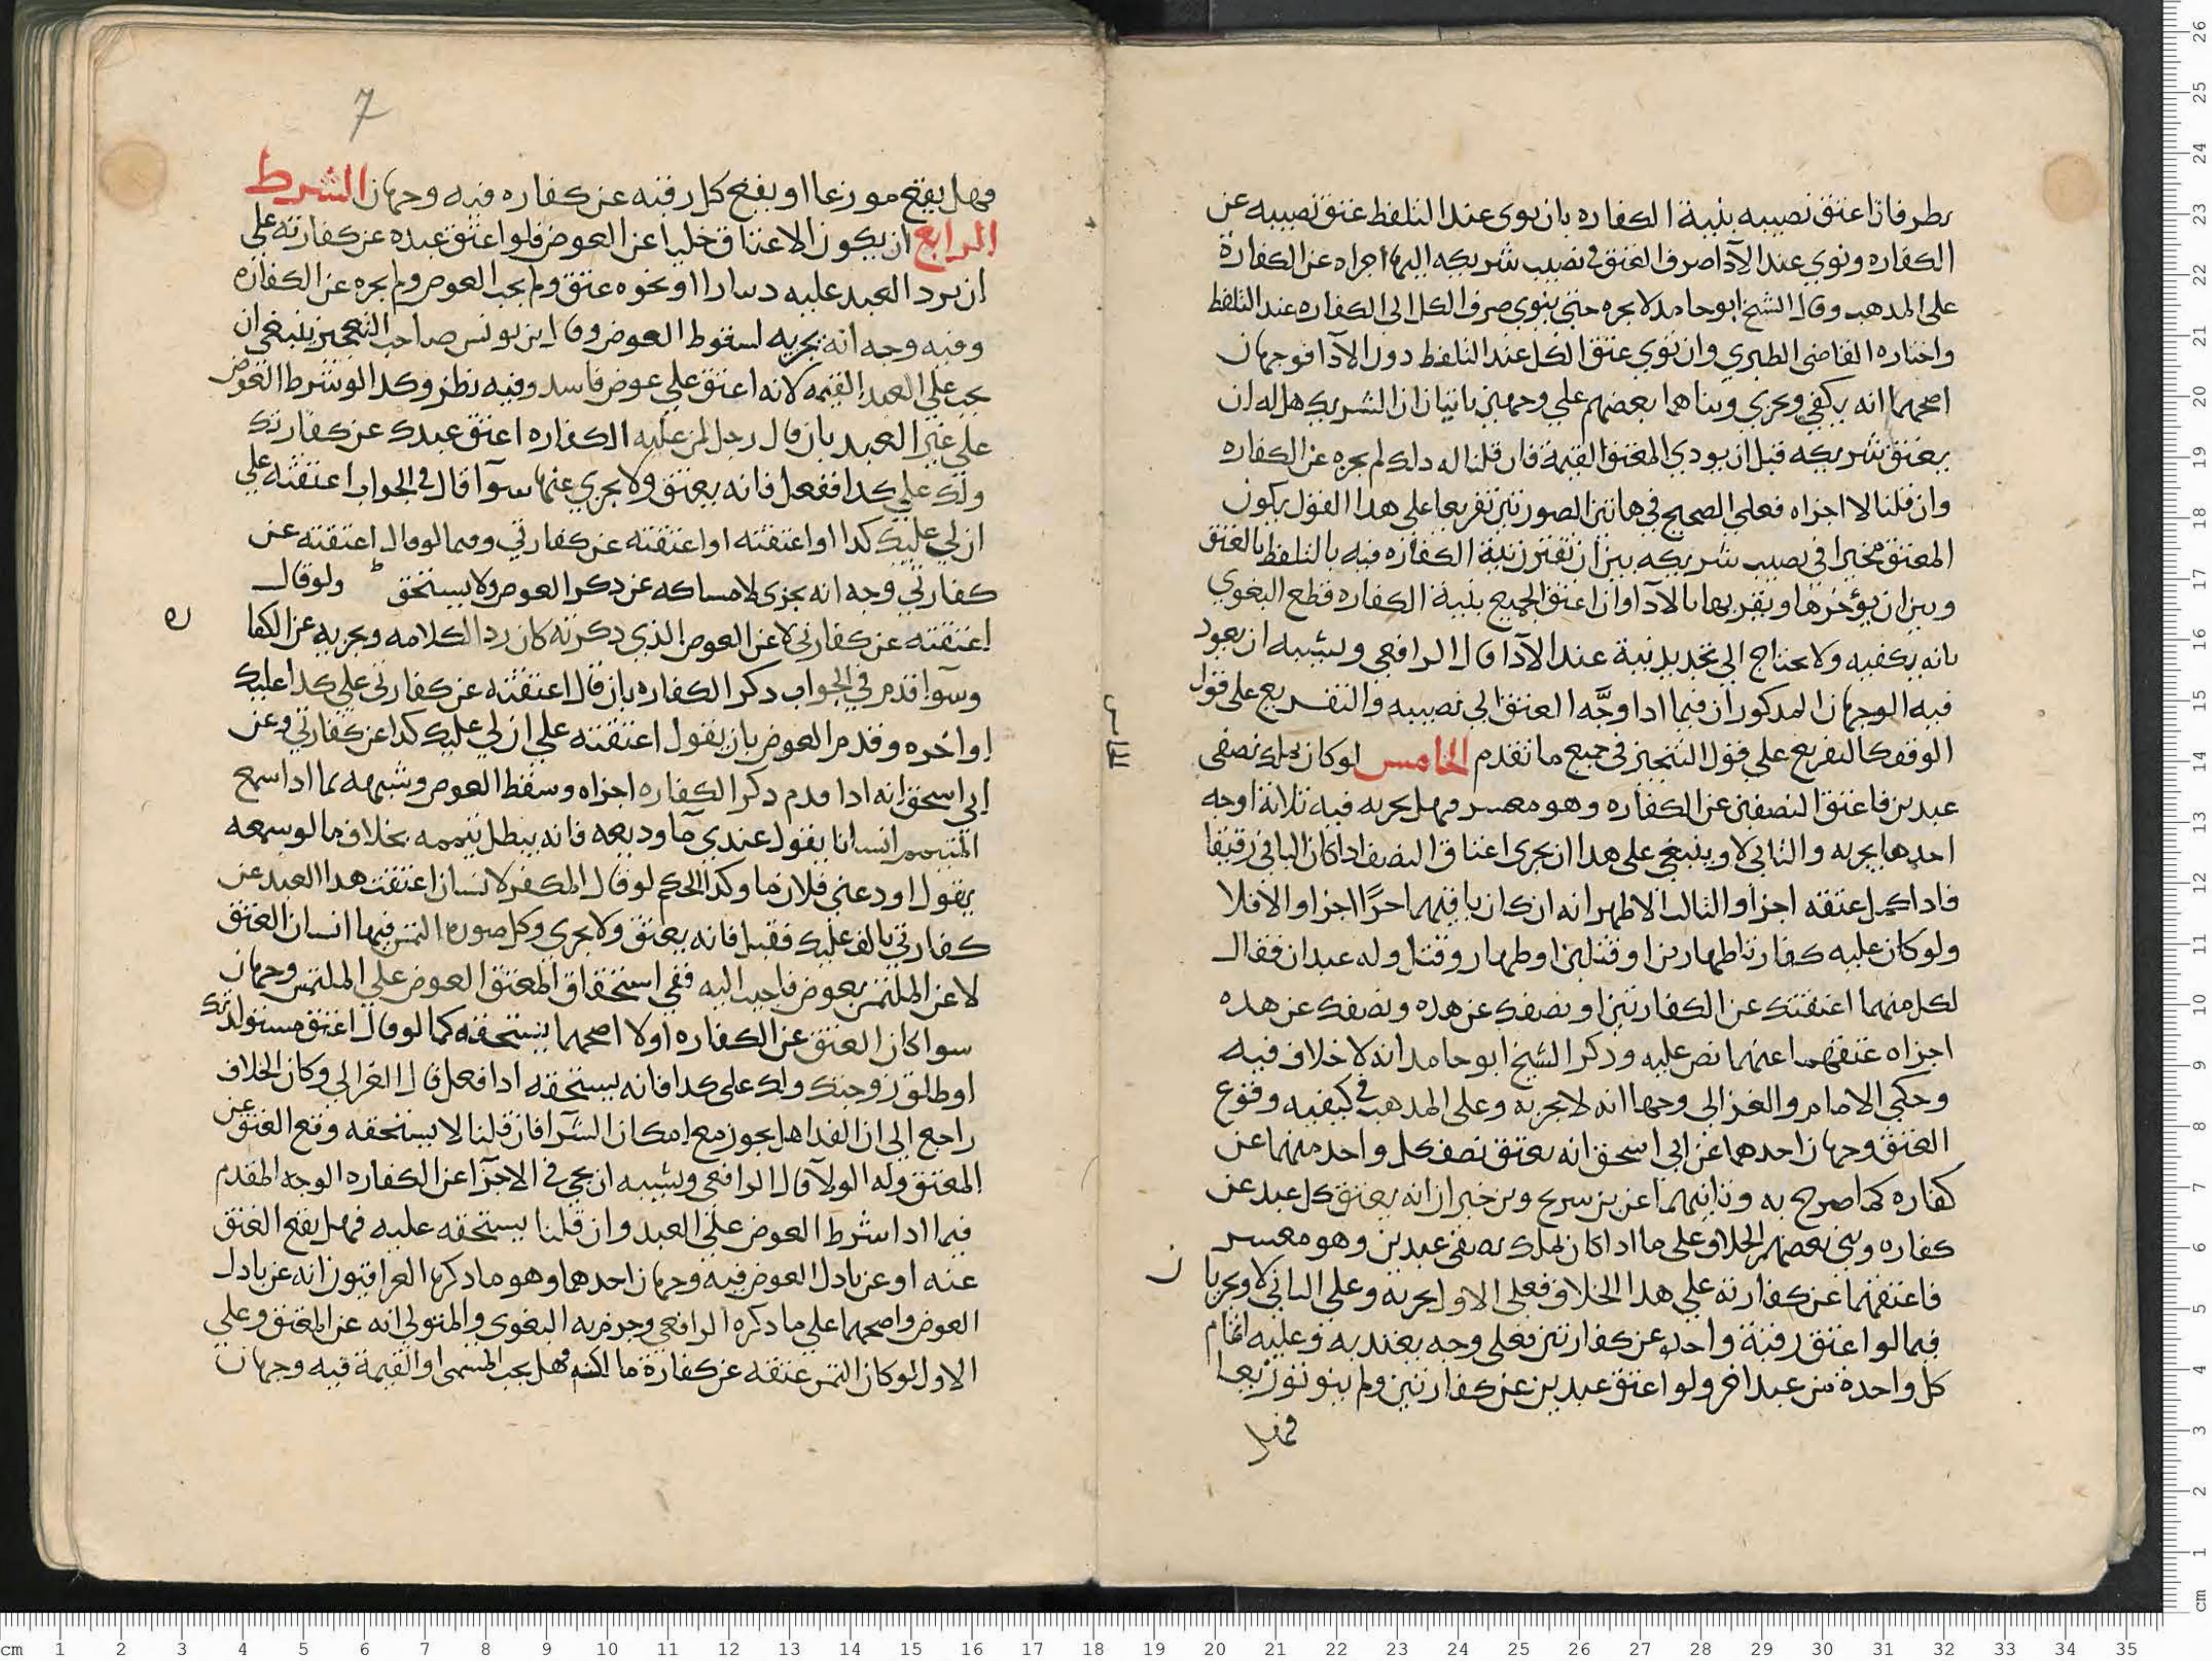 نظر فان اعتق نصيبه بنية الكفاره بان نوى عند التلفظ عتق نصيبه عن
الكفاره ونوي عند الآدا صرف العتق في نصيب شريكه اليها اجراه عن الكفارة
على المدهب وقال الشيخ ابو حامد لا يجره حتى ينوي صرف الكل الى الكفاره عند التلفظ
واختاره القاضى الطبري وان نوي عتق الكل عند التلفظ دون الآدا فوجهان
اصحهما انه يكفي ويجزي وبناهما بعضهم علي وجهين ياتيان ان الشريك هل له ان
يعتق شريكه قبل ان يودي المعتق القيمة فان قلنا له دلك لم يجره عن الكفاره
وان قلنا لا اجزاه فعلي الصحيح في هاتين الصورتين تفريعا على هدا القول يكون
المعتق مخيرا في نصيب شريكه بين ان تقترن نية الكفاره فيه بالتلفظ بالعتق
وبين ان يؤخرها ويقربها بالآدا وان اعتق الجميع بنية الكفاره قطع البغوي
بانه يكفيه ولا يحتاج الي تجديد نية عند الآدا قال الرافعي ويشبه ان يعود
فيه الوجهان المدكوران فيما ادا وجَّه العتق الي نصيبه والتفريع على قول
الوقف كالتفريع علي قول التنجيز في جميع ما تقدم الخامس لو كان يملك نصفى
عبدين فاعتق النصفين عن الكفاره وهو معسر فهل يجريه فيه ثلاثة اوجه
احدها يجريه والثاني لا وينبغي على هدا ان يجرى اعتاق النصف ادا كان الباقي رقيقا
فادا كمل عتقه اجزا والثالث الاظهر انه ان كان باقيهما حرًا اجزا والا فلا
ولو كان عليه كفارتا ظهارين او قتلين او ظهار وقتل وله عبدان فقال
لكل منهما اعتقتك عن الكفارتين او نصفك عن هذه ونصفك عن هده
اجزاه عتقهما عنهما نص عليه ودكر الشيخ ابو حامد انه لا خلاف فيه
وحكى الامام والغزالى وجها انه لا يجريه وعلى المدهب في كيفيه وقوع
العتق وجهان احدهما عن ابي اسحق انه يعتق نصف كل واحد منهما عن
كفاره كما صرح به وثانيهما عن بن سريح وبن خيران انه يعتق كل عبد عن
كفاره وبنى بعضهم الخلاف على ما ادا كان يملك نصفى عبدين وهو معسر
فاعتقهما عن كفارته علي هدا الخلاف فعلى الاول يجريه وعلي الثاني لا ويجريان
فيما لو اعتق رقبة واحده عن كفارتين فعلى وجه يعتد به وعليه اتمام
كل واحدة من عبد اخر ولو اعتق عبدين عن كفارتين ولم ينو توزيعا
فهل
7
فهل يقع موزعا او يقع كل رقبه عن كفاره فيه وجهان الشرط
الرابع ان يكون الاعتاق خليا عن العوض فلو اعتق عبده عن كفارته علي
ان يرد العبد عليه دينارا او نحوه عتق ولم يجب العوض ولم يجره عن الكفاره
وفيه وجه انه يجريه لسقوط العوض وقال ابن يونس صاحب التعجيز ينبغي ان
يجب علي العبد القيمه لانه اعتق علي عوض فاسد وفيه نظر وكدا لو شرط العوض
علي غير العبد بان قال رجل لمن عليه الكفاره اعتق عبدك عن كفارتك
ولك علي كدا ففعل فانه يعتق ولا يجري عنها سوآ قال في الجواب اعتقته علي
ان لي عليك كدا او اعتقته او اعتقته عن كفارتي وفيما لو قال اعتقته عن
كفارتي وجه انه يجزى لامساكه عن دكر العوض ولا يستحق ولو قال
اعتقته عن كفارتي لا عن العوض الذي دكرته كان ردا لكلامه ويجريه عن الكفاره
وسوآ قدم في الجواب دكر الكفاره بان قال اعتقته عن كفارتي علي كدا عليك
او اخره وقدم العوض بان يقول اعتقته علي ان لي عليك كدا عن كفارتي وعن
ابي اسحق انه ادا قدم دكر الكفاره اجزاه وسقط العوض وشبهه بما ادا سمع
المتيمم انسانا يقول عندي مآ وديعه فانه يبطل تيممه بخلاف ما لو سمعه
يقول اودعنى فلان مآ وكدا الحكم لو قال المكفر لانسان اعتقت هدا العبد عن
كفارتي بالف عليك فقبل فانه يعتق ولا يجري وكل صورة التمس فيها انسان العتق
لا عن الملتمس بعوض فاجيب اليه ففي استحقاق المعتق العوض علي الملتمس وجهان
سوا كان العتق عن الكفاره او لا اصحهما يستحقه كما لو قال اعتق مستولدتك
او طلق زوجتك ولك على كدا فانه يستحقه ادا فعل قال الغزالي وكان الخلاف
راجع الي ان الفدا هل يجوز مع امكان الشرآ فان قلنا لا يستحقه وقع العتق عن
المعتق وله الولآ قال الرافعي ويشبه ان يجي في الاجزآ عن الكفاره الوجه المقدم
فيما ادا شرط العوض علي العبد وان قلنا يستحقه عليه فهل يقع العتق
عنه او عن بادل العوض فيه وجهان احدهما وهو ما دكره العراقيون انه عن بادل
العوض واصحهما علي ما دكره الرافعي وجزم به البغوى والمتولي انه عن المعتق وعلي
الاول لو كان التمس عتقه عن كفارة ما لكنه فهل يجب المسمى او القيمة فيه وجهان